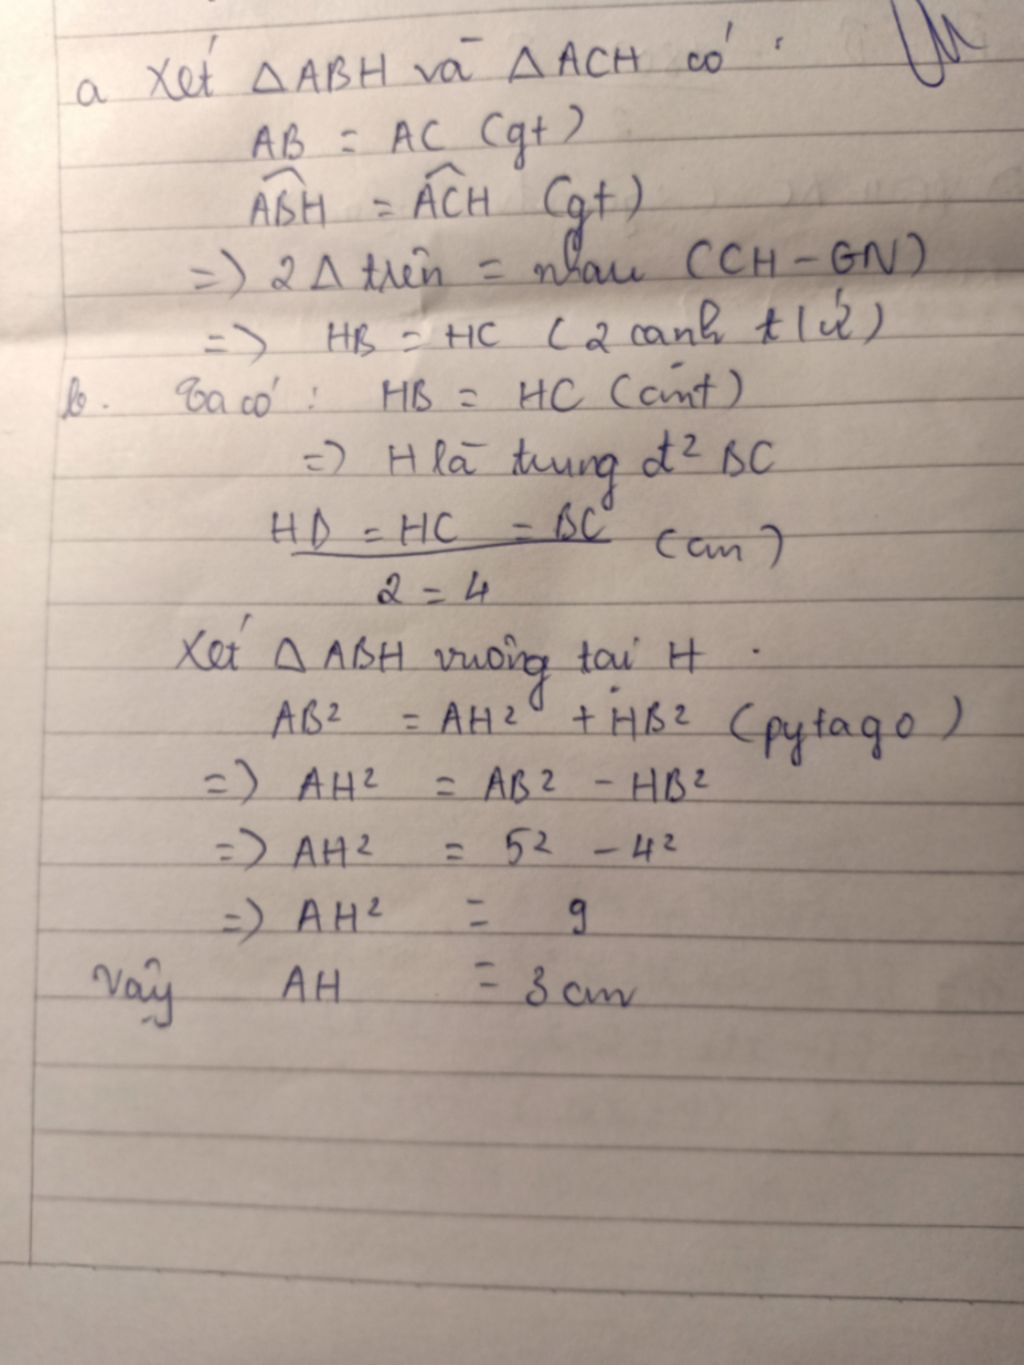 a Xét ΔABH và ΔACH có :
AB = AC (gt)
ABH = ACH (gt)
=> 2Δ trên = nhau (CH-GN)
=> HB = HC (2 cạnh t/ứ)
b. Ta có : HB = HC (cmt)
=> H là trung đ² BC
HB = HC = BC (cm)
2 = 4
Xét Δ ABH vuông tại H .
AB² = AH² + HB² (pytago)
=> AH² = AB² - HB²
=> AH² = 5² - 4²
=> AH² = 9
Vậy AH = 3 cm